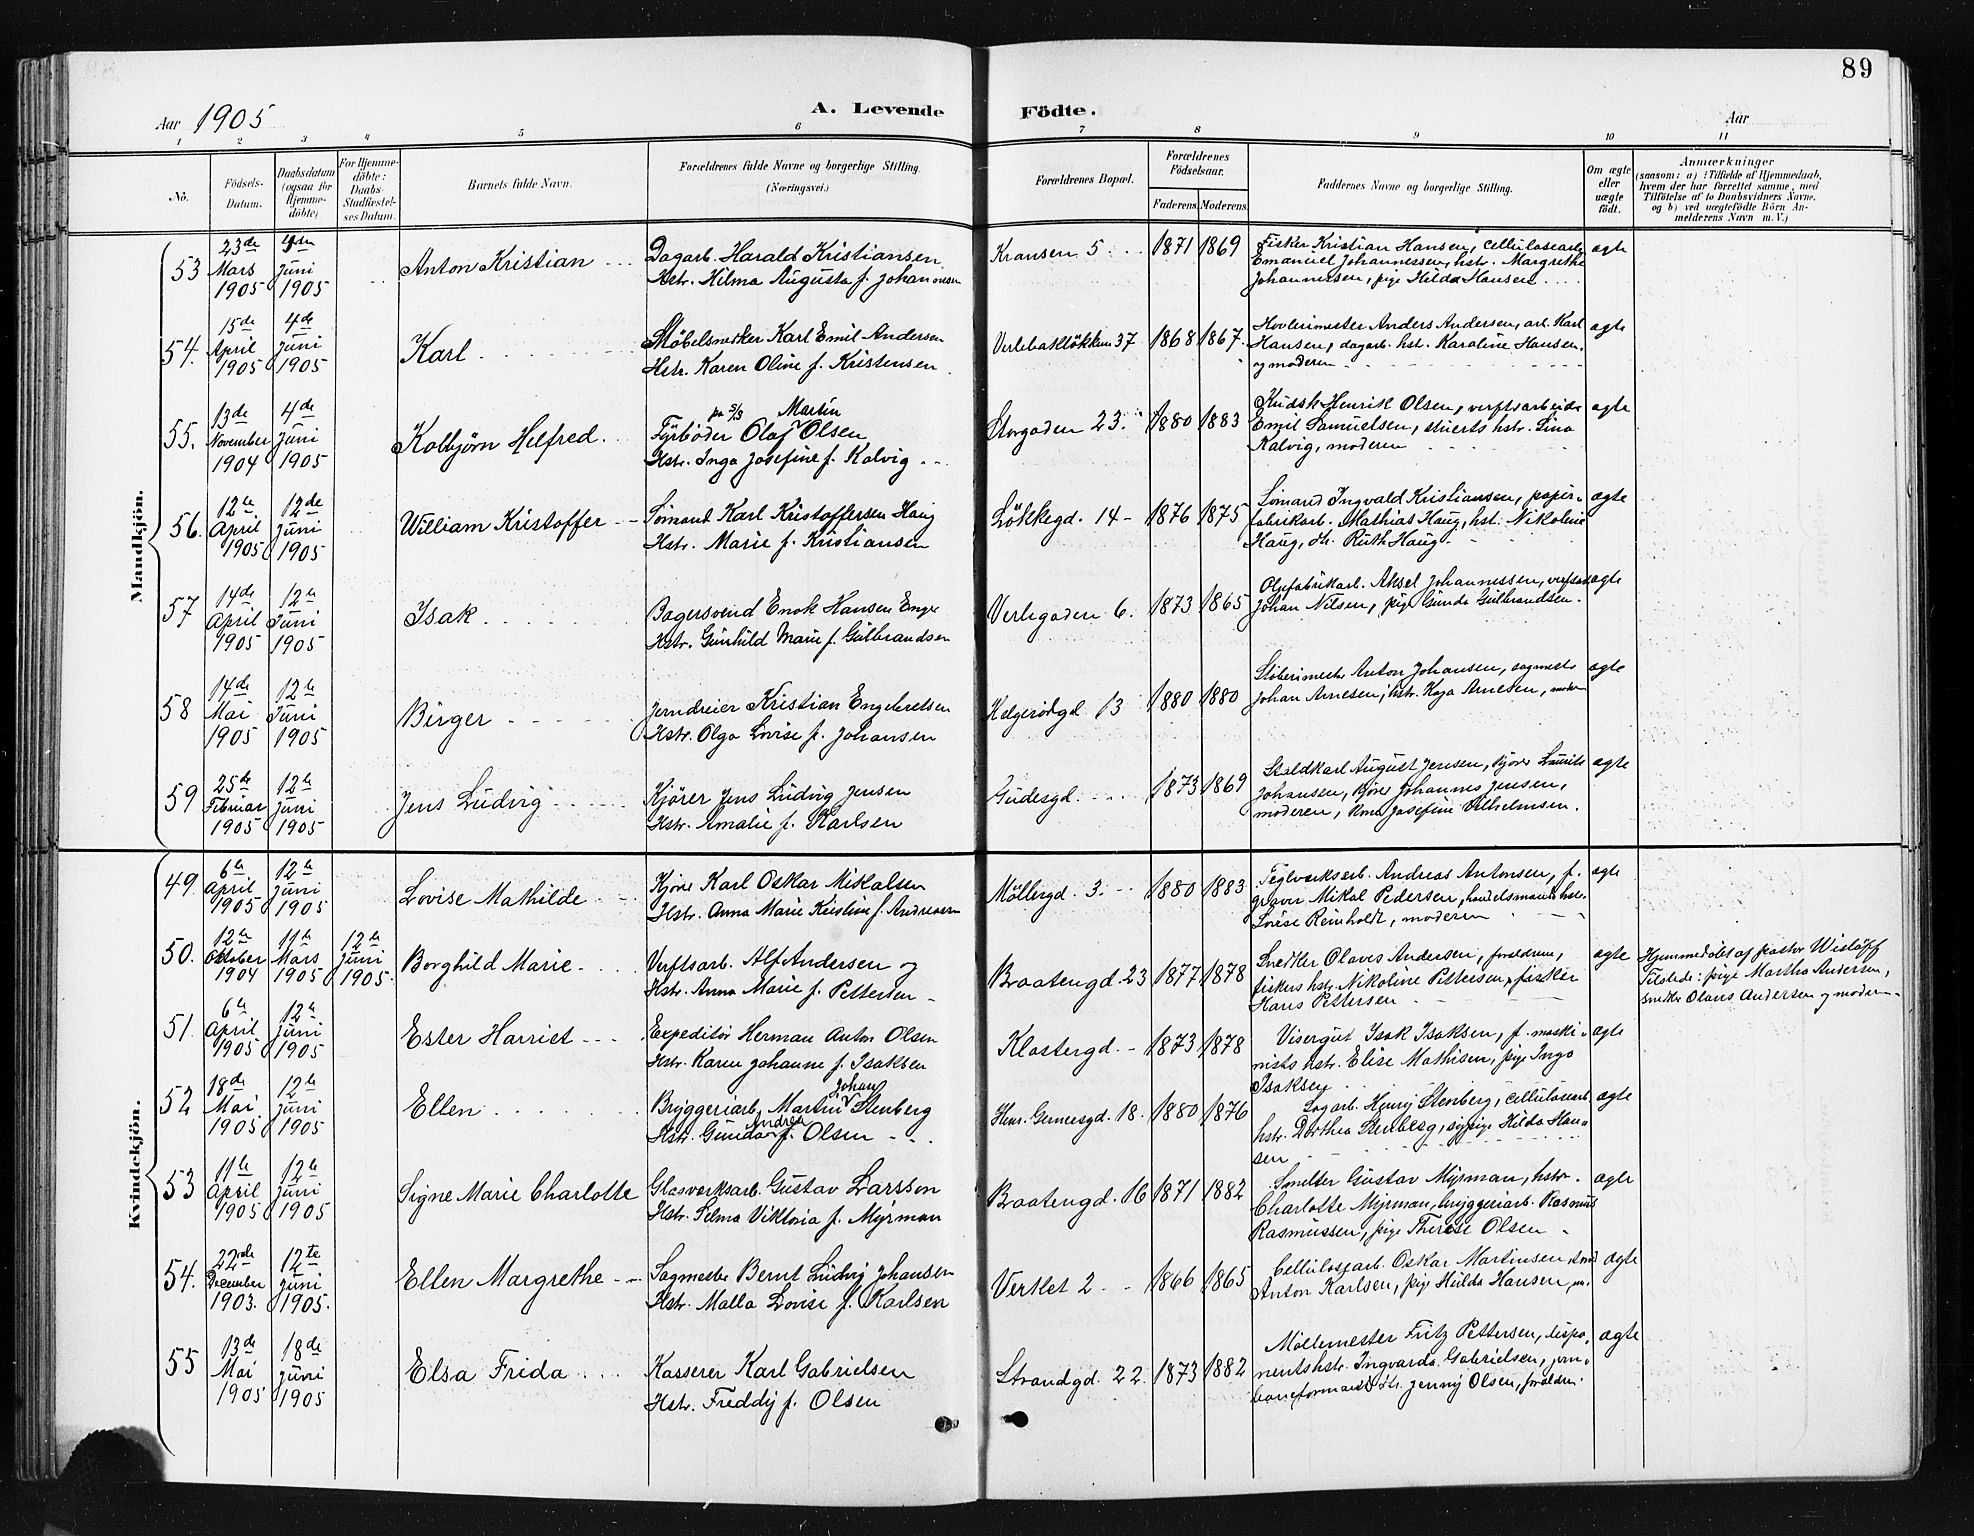 89
Aar 1905
A. Levende Födte.
Aar
1 2 3 4 5 6 7 8 9 10 11
No.
Födsels-Datum.
Daabsdatum (ogsaa for Hjemme-döbte)
For Hjemme-döbte: Daabs-Stadfæstel-ses Datum.
Barnets fulde Navn.
Forældrenes fulde Navne og borgerlige Stilling. (Næringsvei.)
Forældrenes Bopæl.
Forældrenes Födselsaar.
Faderens. Moderens.
Faddernes Navne og borgerlig Stilling.
Om ægte eller uægte födt.
Anmærkninger
(saasom: a) i Tilfælde af Hjemmedaab,
hvem der har forrettet samme, med
Tilföielse af to Daabsvidners Navne,
og b) ved uægtefödte Börn An-
melderens Navn m. V.)
Mandkjön.
53 23de Mars 1905 4den Juni 1905 Anton Kristian
Dagarb. Harald Kristiansen
Hstr. Hilma Augusta f. Johannesen
Kransen 5 1871 1869
Fisker Kristian Hansen, cellulosearb.
Emanuel Johannessen, hstr. Margrethe
Johannessen, pige Hilda Hansen
ægte
54. 15de April 1905 4de Juni 1905 Karl
Möbelsnedker Karl Emil Andersen
Hstr. Karen Oline f. Kristensen
Verlebaklökken 37 1868 1867
Hovlerimester Anders Andersen, arb. Karl
Hansen, dagarb. hst. Karoline Hansen
og moderen
ægte
55. 13de November 1904 4de Juni 1905 Kolbjörn Helfred
Fyrböder pa S/S Olaf Martin Olsen
Hstr. Inga Josefine f. Kalvig
Storgaden 23. 1880 1883
Kudsk Henrik Olsen, verftsarbeider
Emil Samuelsen, stuerts hstr. Lina
Kalvig, moderen
ægte
56. 12te April 1905 12de Juni 1905 William Kristoffer
Sömand Karl Kristoffersen Haug
Hstr. Marie f. Kristiansen
Lökkegd. 14 1876 1875
Sömand Ingvald Kristiansen, papir-
fabrikarb. Mathias Haug, hst. Nikoline
Haug, dtr. Ruth Haug
ægte
57 14de April 1905 12te Juni 1905 Isak
Bagersvend Enok Hansen Enge
Hstr. Gunhild Marie f. Gulbrandsen
Verlegaden 6. 1873 1865
Oljefabrikarb. Aksel Johannessen, verftsarb.
Johan Nilsen, pige Gunda Gulbrandsen.
ægte
58 14de Mai 1905 12te Juni 1905 Birger
Jerndreier Kristian Engebretsen
Hstr. Olga Lovise f. Johansen
Helgerödgd 13 1880 1880
Støberimester Anton Johansen, sagmester
Johan Arnesen, hstr. Kaja Arnesen, moderen
ægte
59 25de Februar 1905 12te Juni 1905 Jens Ludvig
Kjörer Jens Ludvig Jensen
Hstr. Amalie f. Karlsen
Gudesgd. 1873 1869
Staldkarl August Jensen, kjörer Laurits
Johansen, kjörer Johannes Jensen,
moderen, Josefine Vilhelmsen.
ægte
Kvindekjön.
49. 6te April 1905 12te Juni 1905 Lovise Mathilde
Kjörer Karl Oskar Mikalsen
Hstr. Anna Marie Kristine f. Andreasen
Möllergd. 3. 1880 1883
Teglverksarb. Andreas Antonsen, f.
graver Mikal Pedersen, handelsmands hstr.
Lovise Reinholdt, moderen
ægte
50. 12te Oktober 1904 11te Mars 1905 12te Juni 1905. Borghild Marie
Verftsarb. Alf Andersen og
Hstr. Anna Marie f. Pettersen
Braatengd. 23 1877 1878
Snedker Olaves Andersen, forældrene,
fiskers hstr. Nikoline Pettersen, fisker
Hans Pettersen
ægte
Hjemmedöbt af pastor Wislöff
Tilstede: pige Martha Andersen,
snedker Olaus Andersen og moderen
51. 6te April 1905 12te Juni 1905 Ester Harriet
Expeditör Herman Anton Olsen
Hstr. Karen Johanne f. Isaksen
Klostergd. 1873 1878
Visergut Isak Isaksen, f. maski-
nists hstr. Elise Mathisen, pige Inga
Isaksen
ægte
52 18de Mai 1905 12te Juni 1905 Ellen
Bryggeriarb. Martin Johan Stenberg
Hstr. Gunda Andrea f. Olsen
Henr. Gernersgd. 18. 1880 1876
Sagarb. Henry Stenberg, cellulosearb.
hstr. Dorthea Stenberg, sypige Hilda Han-
sen
ægte
53 11te April 1905 12te Juni 1905 Signe Marie Charlotte
Glasverksarb. Gustav Larsson
Hstr. Selma Viktoria f. Myrman
Braatengd. 16 1871 1882
Smelter Gustav Myrman, hstr.
Charlotte Myrman, bryggeriarb. Rasmus
Rasmussen, pige Therese Olsen
ægte
54. 22nde December 1903. 12te Juni 1905. Ellen Margrethe
Sagmester Bernt Ludvig Johansen
Hstr. Malla Lovise f. Karlsen
Verket 2 1866 1865
Cellulosearb. Oskar Martinsen
Anton Karlsen, pige Hulda Hansen,
ægte
55 13de Mai 1905 18de Juni 1905 Elsa Frida
Kasserer Karl Gabrielsen
Hstr. Freddy f. Olsen
Strandgd. 22. 1873 1882
Möllemester Fritz Pettersen, dispo-
nents hstr. Ingvarda Gabrielsen, jern-
baneformands dtr. Jenny Olsen, forældrene
ægte